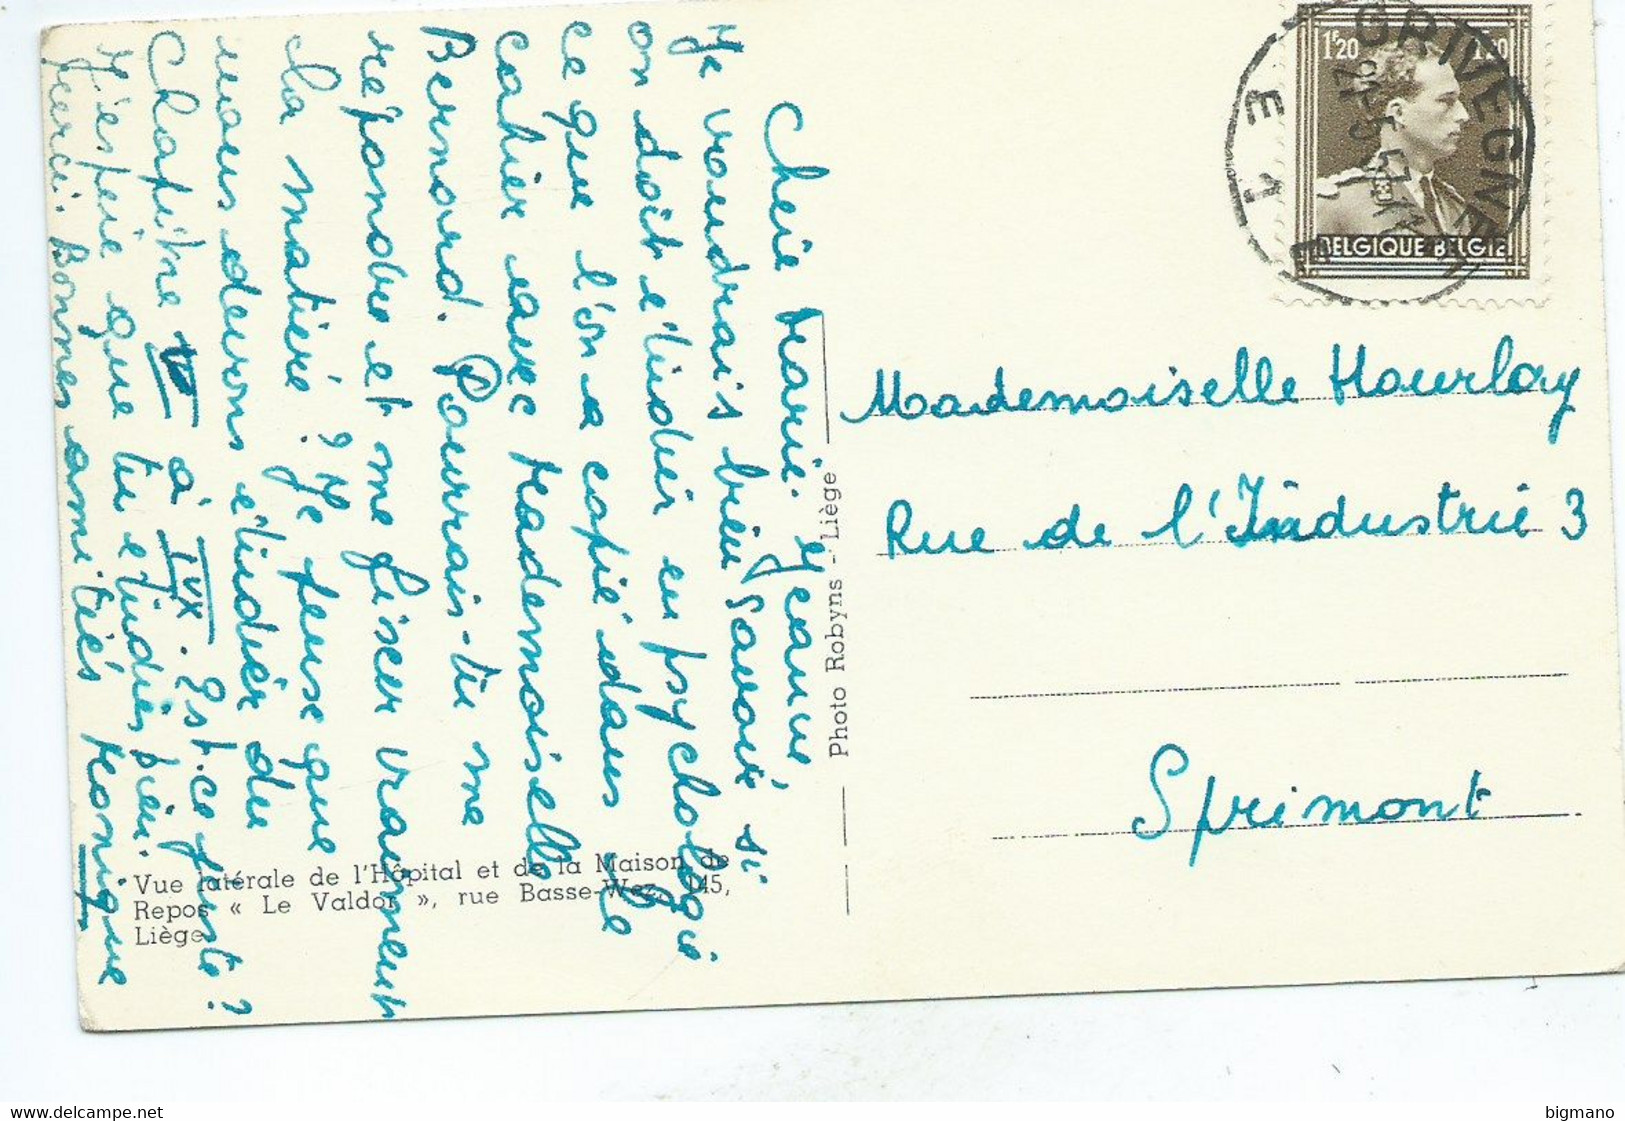 Chère Marie-Jeanne
Je voudrais bien savoir si
on doit étudier en psychologie
ce que l'on a copié dans le
cahier avec Mademoiselle
Bernard. Pourrais-tu me
répondre et me fixer vraiment
la matière ? Je pense que
nous devons étudier du
Chapitre V à IX. Est-ce juste ?
J'espère que tu étudies bien.
Merci. Bonnes amitiés Monique
Vue latérale de l'Hôpital et de la Maison de
Repos « Le Valdor », rue Basse-Wez, 145,
Liège
Photo Robyns - Liège
GRIVEGNEE
E 1 E
1F20 1F20
BELGIQUE BELGIE
Mademoiselle Hourlay
Rue de l'Industrie 3
Sprimont
bigmano